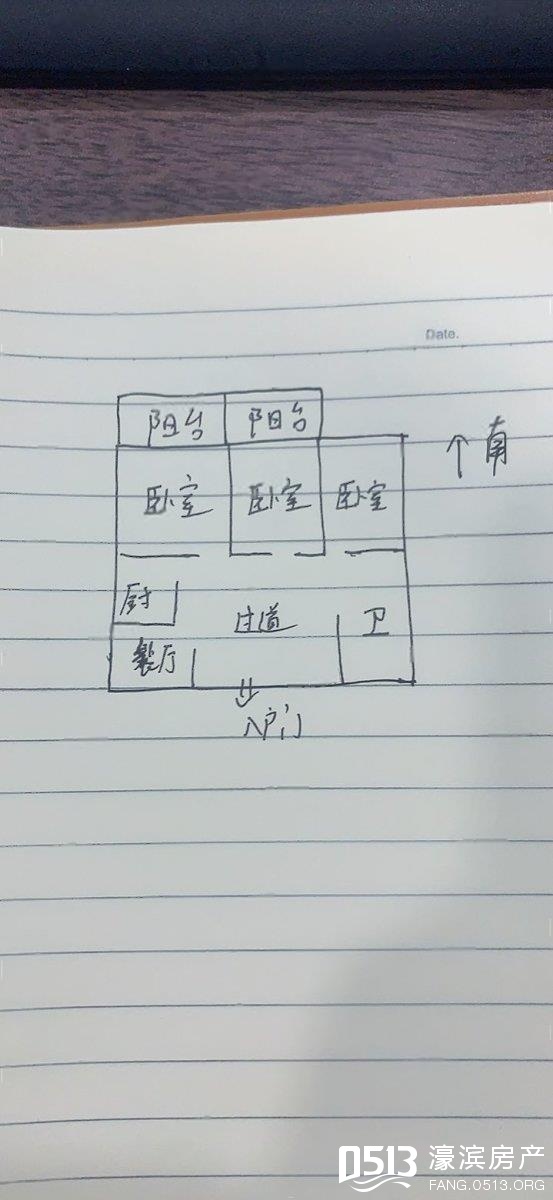 Date.
阳台 阳台
↑南
卧室 卧室 卧室
厨 过道 卫
餐厅
入户门
0513 濠滨房产
FANG.0513.ORG